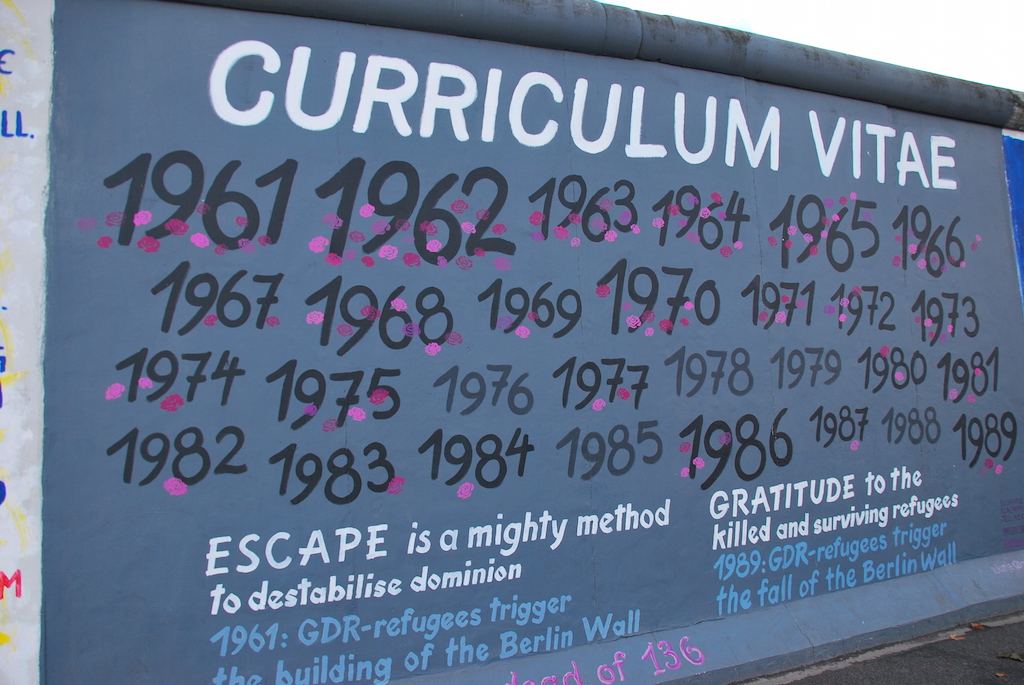 LL.
CURRICULUM VITAE
1961 1962 1963 1964 1965 1966
1967 1968 1969 1970 1971 1972 1973
1974 1975 1976 1977 1978 1979 1980 1981
1982 1983 1984 1985 1986 1987 1988 1989
ESCAPE is a mighty method
to destabilise dominion
1961: GDR-refugees trigger
the building of the Berlin Wall
GRATITUDE to the
killed and surviving refugees
1989: GDR-refugees trigger
the fall of the Berlin Wall
of 136